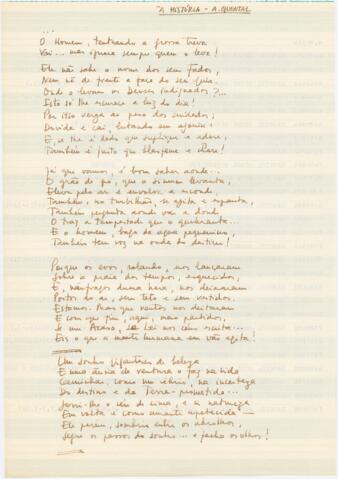 "A HISTÓRIA - A. QUENTAL
...
O Homem, tenteando a grossa treva
Vai... mas ignora sempre quem o leva!
Ele não sabe o nome dos seus fados,
Nem vê de frente a face do seu guia.
Onde o levam os Deuses indignados?...
Isto só lhe escurece a luz do dia!
Por isso verga ao peso dos cuidados;
Duvida e cai, lutando em agonia:
E, se lhe é dado que suplique e adore,
Também é justo que blasfeme e chore!
Já que vamos, é bom saber aonde...
O grão de pó, que o simoun levanta,
Elevou pelo ar e envolve e esconde,
Também, no turbilhão, se agita e espanta,
Também pergunta aonde vai e donde
O traz a tempestade que o quebranta...
E o homem, bago de água pequenina,
Também tem voz na onda do destino!
Porque os evos, rolando, nos lançaram
Sobre a praia dos tempos, esquecidos,
E, náufragos duma hora, nos deixaram
Postos ao ar, sem teto e sem vestidos.
Estamos. Mas que ventos nos deitaram
E com que fim, aqui, meio partidos,
Se um Acaso, se Lei nos céus escrita...
Eis o que a mente humana em vão agita!
Um sonho gigantesco de beleza
E uma ânsia de ventura o faz na vida
Caminhar, como um ébrio, na incerteza
Do destino e da Terra-prometida...
Sorri-lhe o céu de cima, e a natureza
Em volta é como amante apetecida —
Ele porém, sombrio entre os abrolhos,
Segue os passos do sonho... e fecha os olhos!